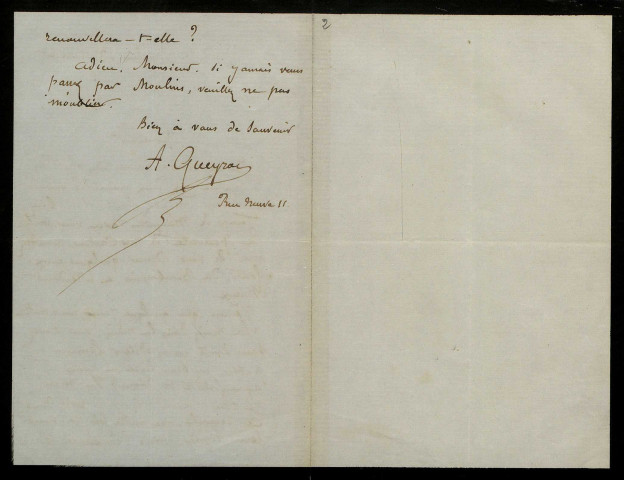 2
renouvellera-t-elle ?
Adieu, Monsieur. Si jamais vous
passez par Moulins, veuillez ne pas
m'oublier.
Bien à vous de souvenir
A. Queyroy
Rue neuve 11